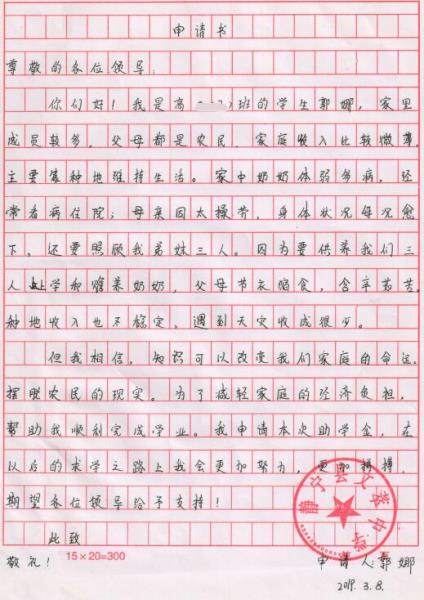 申请书
尊敬的各位领导：
你们好！我是高一（2）班的学生郭娜，家里
成员较多，父母都是农民，家庭收入比较微薄，
主要靠种地维持生活。家中奶奶体弱多病，经
常看病住院；母亲因太操劳，身体状况每况愈
下，还要照顾我弟妹三人。因为要供养我们三
人上学和赡养奶奶，父母节衣缩食，含辛茹苦，
种地收入也不稳定，遇到天灾收成很少。
但我相信，知识可以改变我们家庭的命运，
摆脱农民的现实。为了减轻家庭的经济负担，
帮助我顺利完成学业。我申请本次助学金，在
以后的求学之路上我会更加努力，更加拼搏，
期望各位领导给予支持！
此致
敬礼！
15×20=300
申请人：郭娜
2019.3.8.
静宁县文萃中学